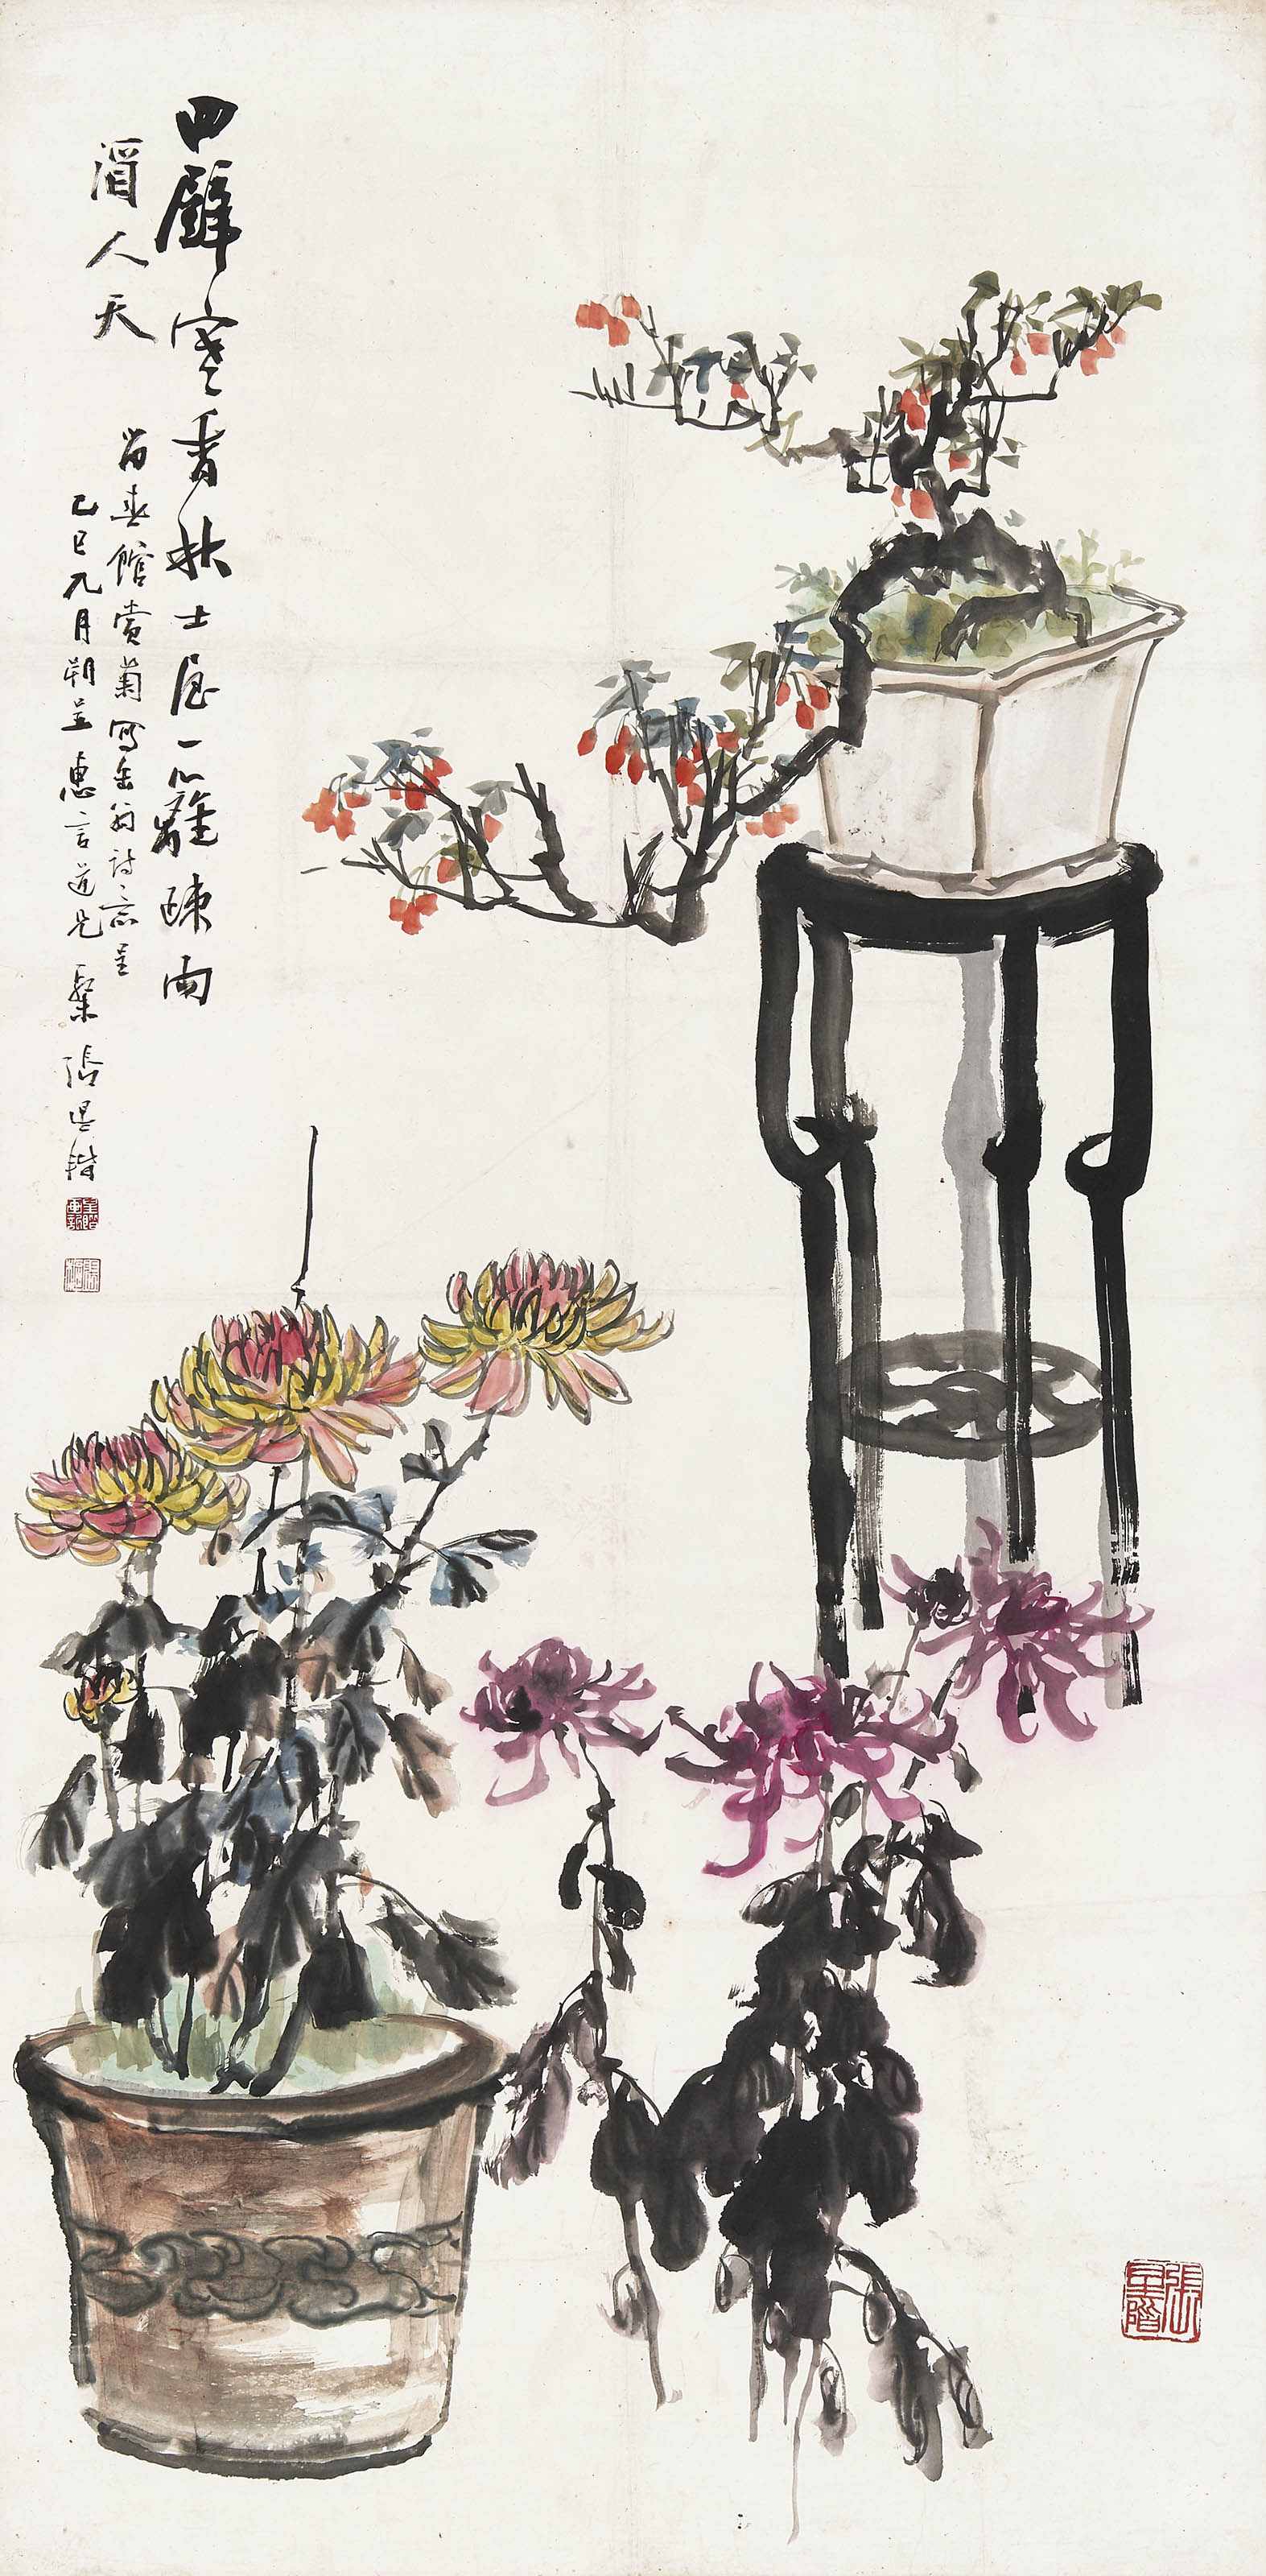 四壁寒香秋士屋一籬疎雨
酒人天
留春館賞菊寫缶翁詩意
己巳九月朔呈惠言道兄粲張星階
張星階